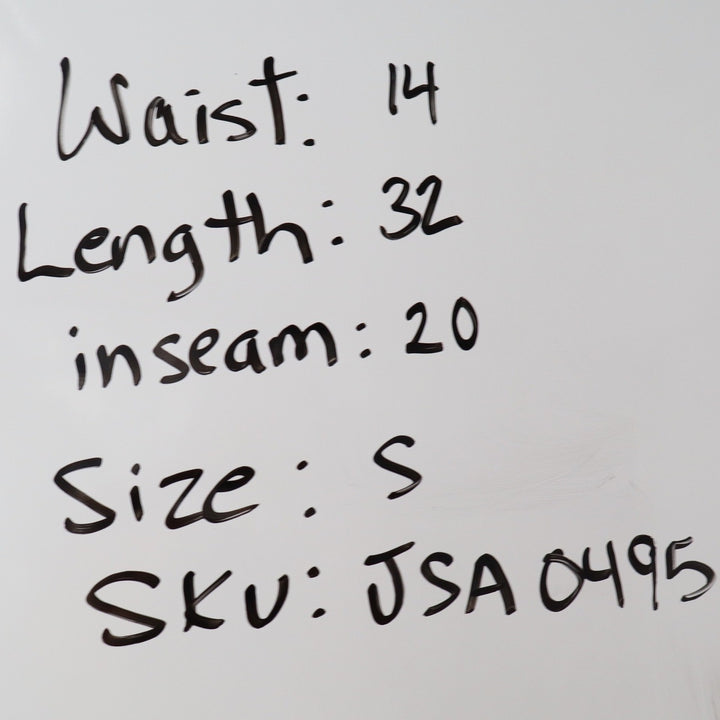 Waist: 14
Length: 32
inseam: 20
Size: S
SKU: JSA 0495